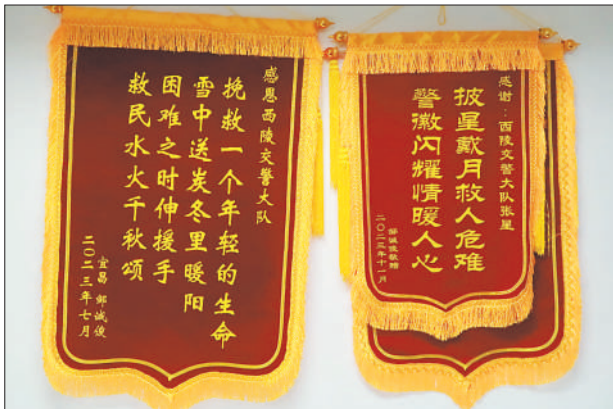 感恩西陵交警大队
挽救一个年轻的生命
雪中送炭冬里暖阳
困难之时伸援手
救民水火千秋颂
宜昌 邹诚俊
二〇二三年七月
感谢：西陵交警大队张星
披星戴月救人危难
警徽闪耀情暖人心
邹诚俊敬赠
二〇二三年十一月